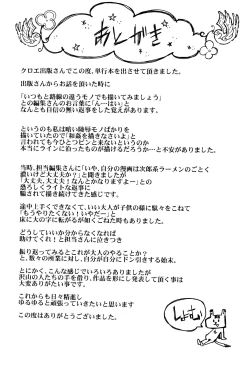 あとがき
クロエ出版さんでこの度、単行本を出させて頂きました。
出版さんからお話を頂いた時に
「いつもと路線の違うモノでも描いてみましょう」
との編集さんのお言葉に「んーはい」と
なんとも自信の無い返事をした覚えがあります。
というのも私は暗い陵辱モノばかりを
描いていたので「和姦を描きなさいよ」と
言われても今ひとつピンと来ないというのか
本当にラインに沿ったものが描けるだろうか…と不安がありました。
当時、担当編集さんに「いや、自分の漫画は次郎系ラーメンのごとく
濃いけど大丈夫か？」と聞きましたが
「大丈夫、大丈夫！なんとかなりますよー」との
恐ろしくライトな返事に
騙されて描き続けてきた感じです。
途中上手くできなくて、いい大人が子供の様に駄々をこねて
「もうやりたくない！いやだー」と
床に大の字に転がるが如くごねた時もありました。
どうしていいか分からなくなれば
助けてくれ！と担当さんに泣きつき
振り返ってみるとこれが大人のやることか？
と、数々の所業に対し、自分が自分にドン引きする始末、
とにかく、こんな感じでいろいろありましたが
沢山の人たちの手を借り、作品を形にし発表して頂く事は
大変ありがたい事です。
これからも日々精進し
ゆるゆると頑張っていきたいと思います
この度はありがとうございました。